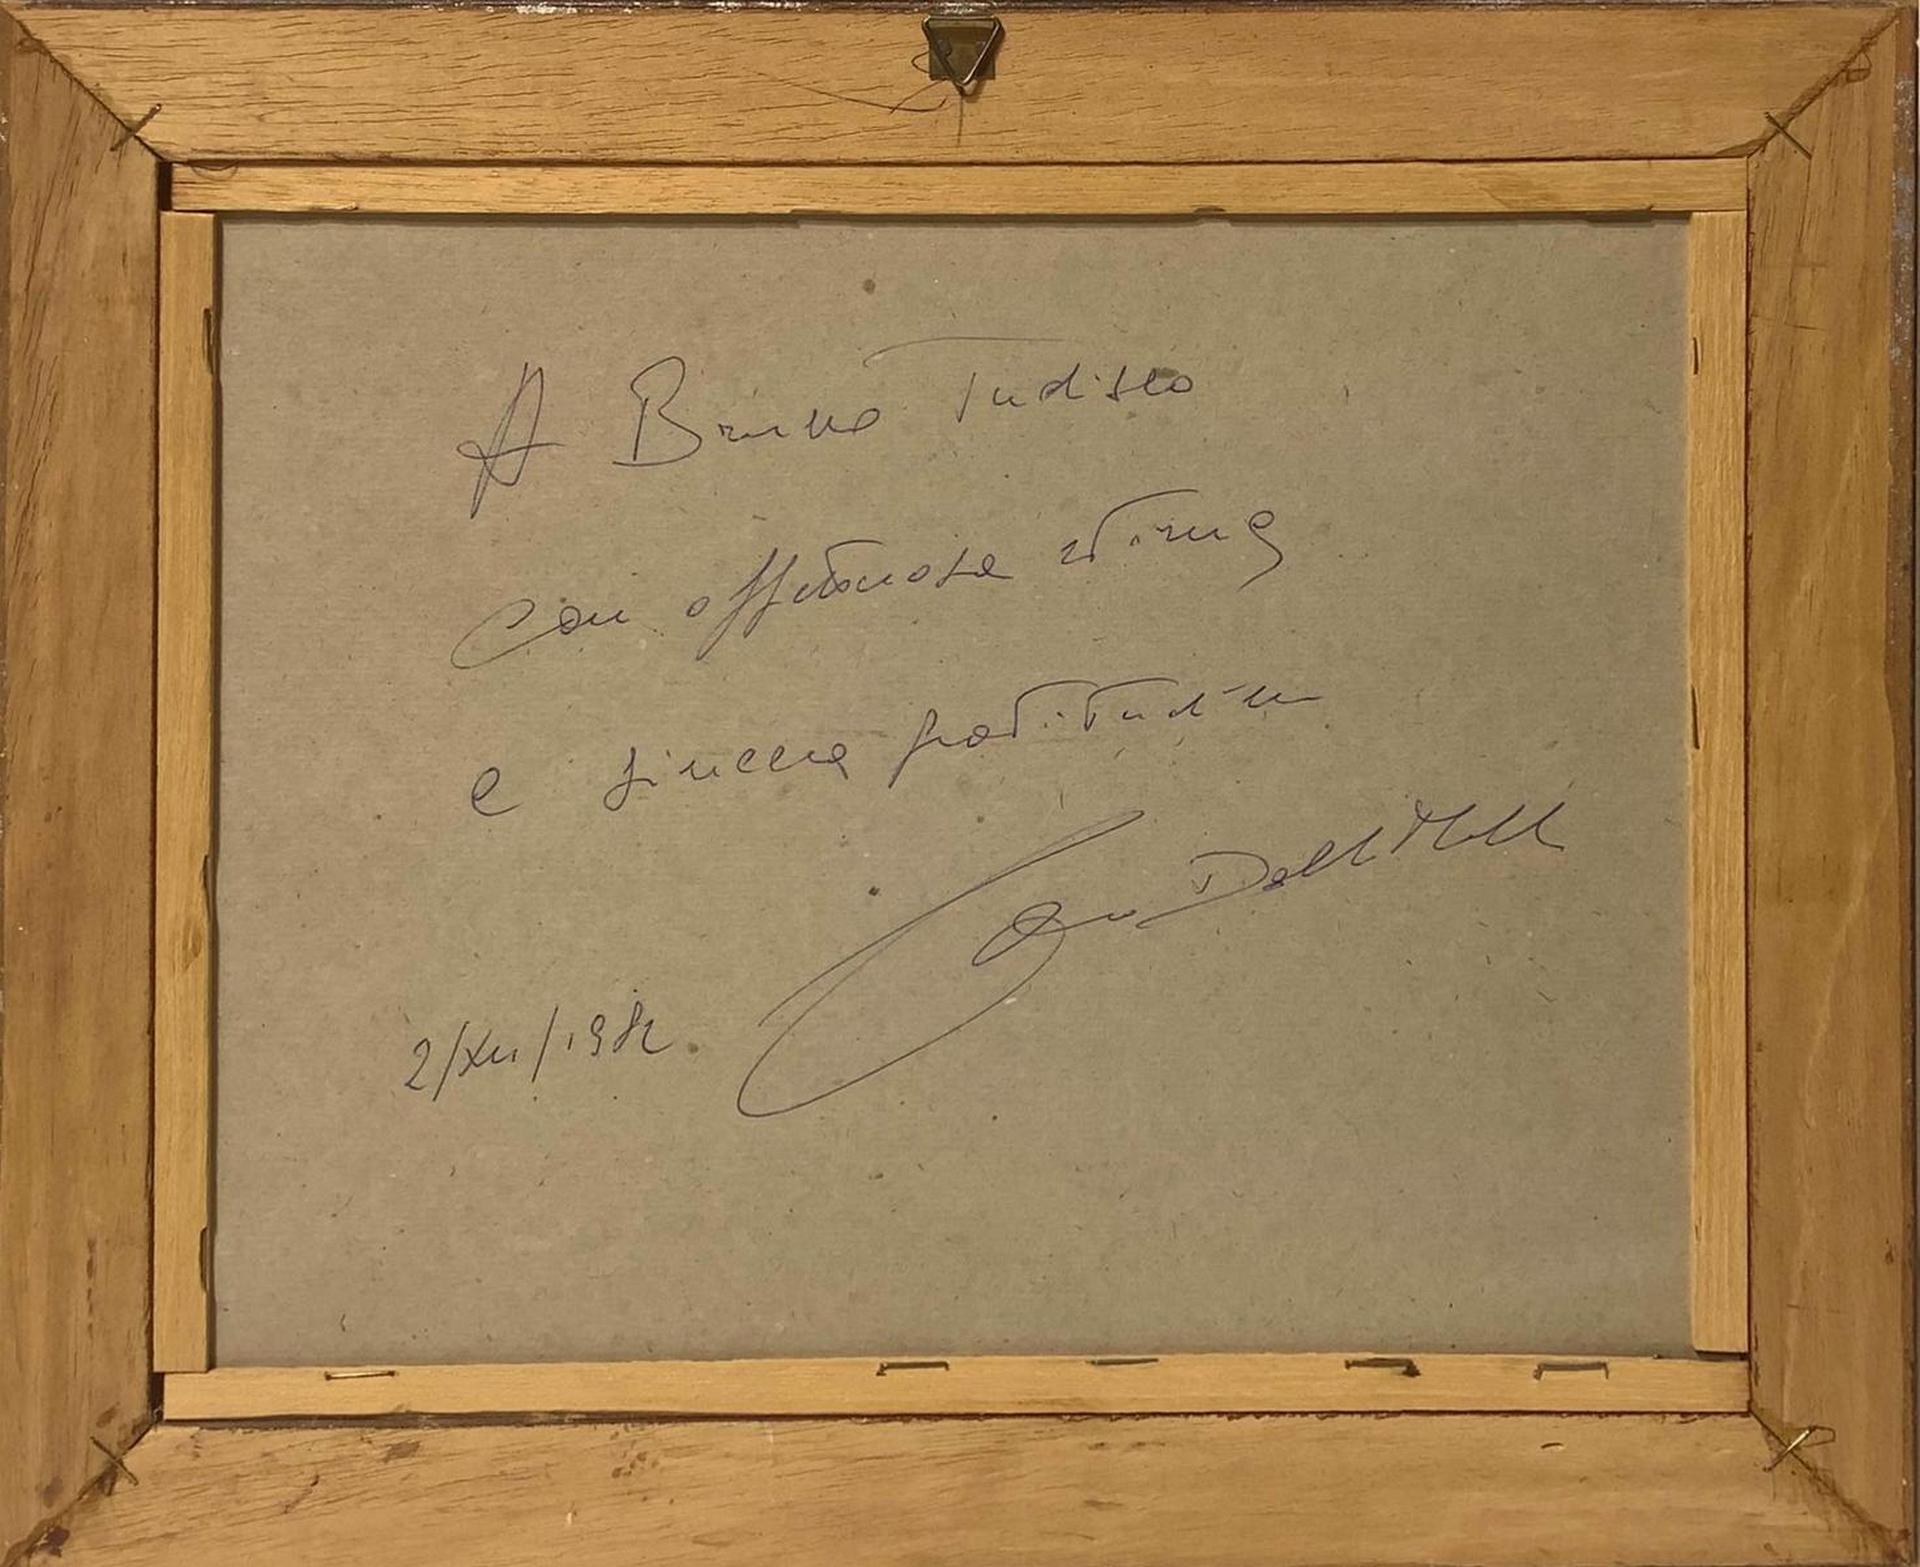 A Bruno Tudisco
con affettuosa stima
e sincera gratitudine
Dalla
2/XII/1982